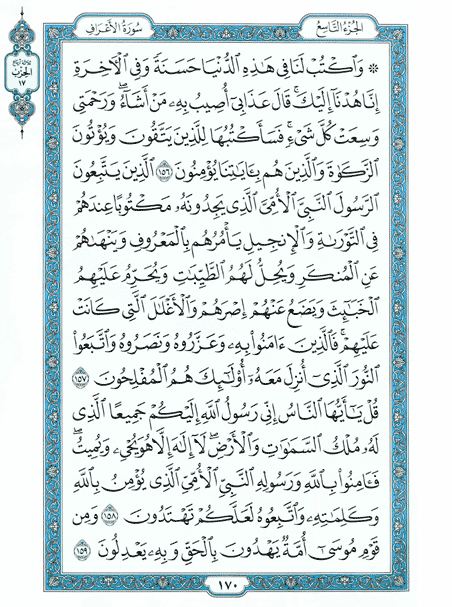 سُورَةُ الأَعْرَافِ
الجُزْءُ التَّاسِعُ
الحِزْب
١٧
۞ وَٱكْتُبْ لَنَا فِي هَٰذِهِ ٱلدُّنْيَا حَسَنَةً وَفِي ٱلْءَاخِرَةِ
إِنَّا هُدْنَآ إِلَيْكَۚ قَالَ عَذَابِيٓ أُصِيبُ بِهِۦ مَنْ أَشَآءُۖ وَرَحْمَتِي
وَسِعَتْ كُلَّ شَيْءٍۚ فَسَأَكْتُبُهَا لِلَّذِينَ يَتَّقُونَ وَيُؤْتُونَ
ٱلزَّكَوٰةَ وَٱلَّذِينَ هُم بِـَٔايَٰتِنَا يُؤْمِنُونَ ١٥٦ ٱلَّذِينَ يَتَّبِعُونَ
ٱلرَّسُولَ ٱلنَّبِيَّ ٱلْأُمِّيَّ ٱلَّذِي يَجِدُونَهُۥ مَكْتُوبًا عِندَهُمْ
فِي ٱلتَّوْرَىٰةِ وَٱلْإِنجِيلِ يَأْمُرُهُم بِٱلْمَعْرُوفِ وَيَنْهَىٰهُمْ
عَنِ ٱلْمُنكَرِ وَيُحِلُّ لَهُمُ ٱلطَّيِّبَٰتِ وَيُحَرِّمُ عَلَيْهِمُ
ٱلْخَبَٰٓئِثَ وَيَضَعُ عَنْهُمْ إِصْرَهُمْ وَٱلْأَغْلَٰلَ ٱلَّتِي كَانَتْ
عَلَيْهِمْۚ فَٱلَّذِينَ ءَامَنُوا۟ بِهِۦ وَعَزَّرُوهُ وَنَصَرُوهُ وَٱتَّبَعُوا۟
ٱلنُّورَ ٱلَّذِيٓ أُنزِلَ مَعَهُۥٓ أُو۟لَٰٓئِكَ هُمُ ٱلْمُفْلِحُونَ ١٥٧
قُلْ يَٰٓأَيُّهَا ٱلنَّاسُ إِنِّي رَسُولُ ٱللَّهِ إِلَيْكُمْ جَمِيعًا ٱلَّذِي
لَهُۥ مُلْكُ ٱلسَّمَٰوَٰتِ وَٱلْأَرْضِۖ لَآ إِلَٰهَ إِلَّا هُوَ يُحْيِۦ وَيُمِيتُۖ
فَـَٔامِنُوا۟ بِٱللَّهِ وَرَسُولِهِ ٱلنَّبِيِّ ٱلْأُمِّيِّ ٱلَّذِي يُؤْمِنُ بِٱللَّهِ
وَكَلِمَٰتِهِۦ وَٱتَّبِعُوهُ لَعَلَّكُمْ تَهْتَدُونَ ١٥٨ وَمِن
قَوْمِ مُوسَىٰٓ أُمَّةٌ يَهْدُونَ بِٱلْحَقِّ وَبِهِۦ يَعْدِلُونَ ١٥٩
١٧٠